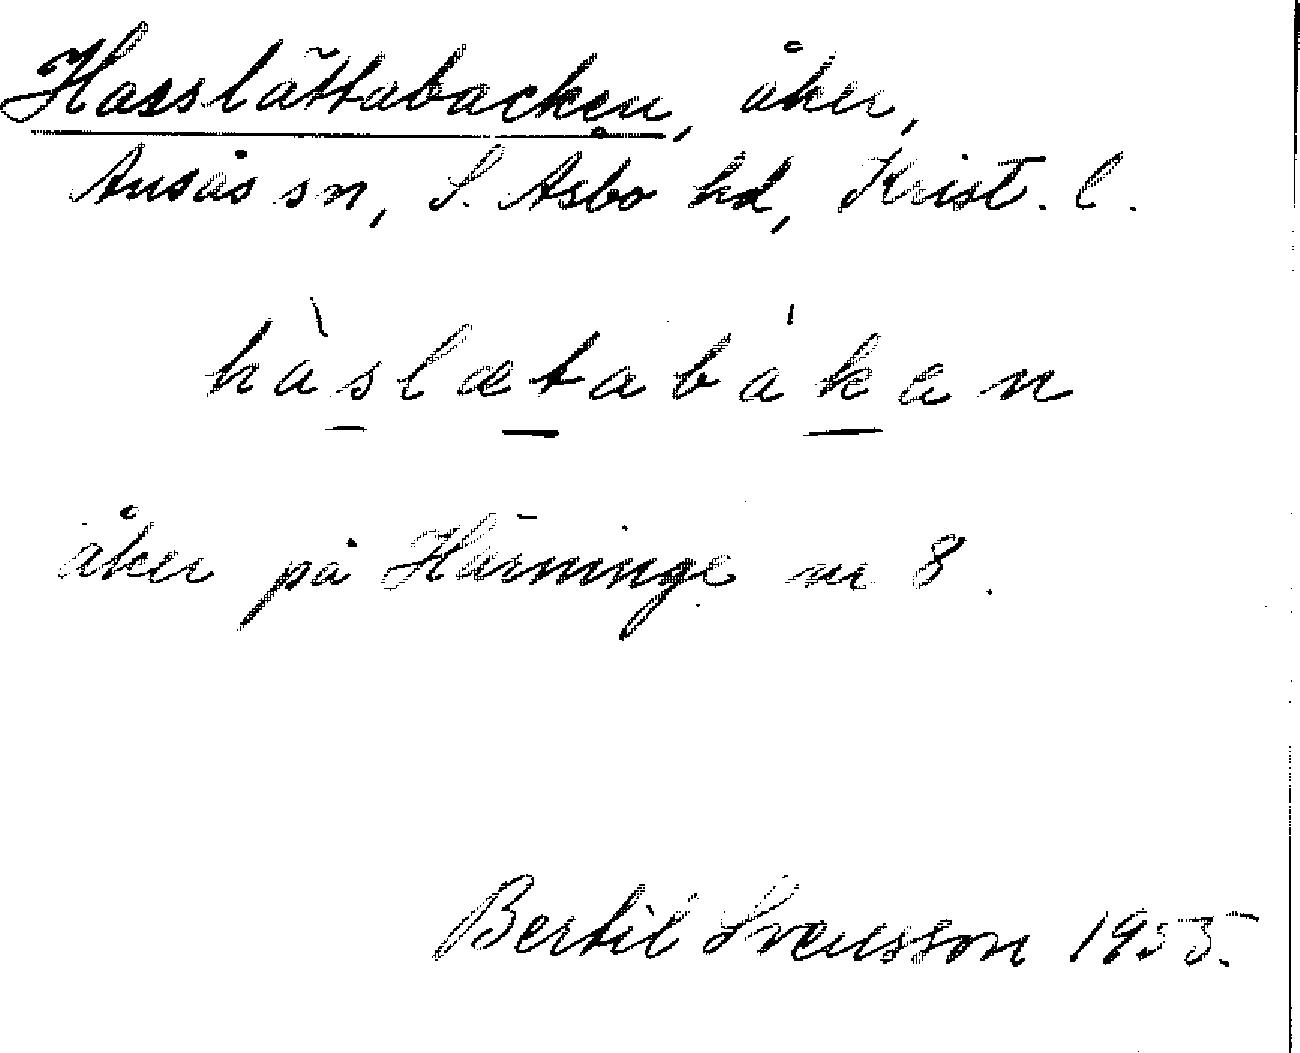 Hasslättabacken, åker,
Ausås sn, S. Åsbo hd, Krist. l.
hàslætabákan
åker på Härninge nr 8.
Bertil Svensson 1955.